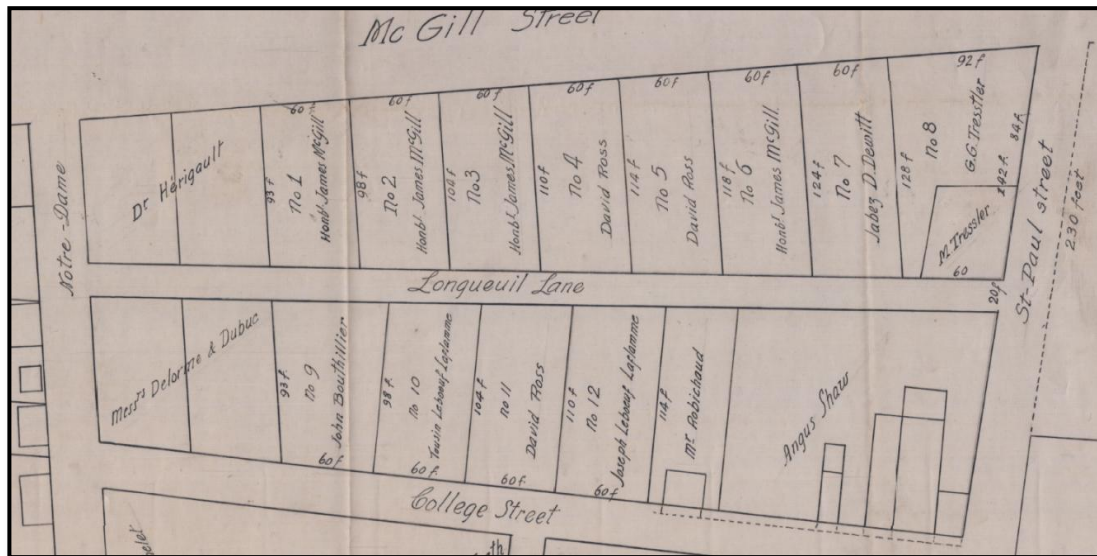 Mc Gill Street
Notre-Dame
Dr Hérigault
60f
93 f
No 1
Honbl James McGill
60f
98 f
No 2
Honbl James McGill
60f
No 3
Honbl James McGill
60f
110 f
No 4
David Ross
60f
114 f
No 5
David Ross
60f
118 f
No 6
Honbl James McGill
60f
124 f
No 7
Jabez D. Dewitt
92f
128 f
No 8
G.G. Tresstler
84 f
192 f.
M. Tressler
60
St-Paul street
230 feet
Longueuil Lane
20f
Messrs Delorme & Dubuc
93 f
No 9
John Bouthillier
60f
98 f.
No 10
Leboeuf Laflamme
60f
104 f
No 11
David Ross
60f
110 f
No 12
Joseph Leboeuf Laflamme
60f
114 f
Mr Robichaud
Angus Shaw
College Street